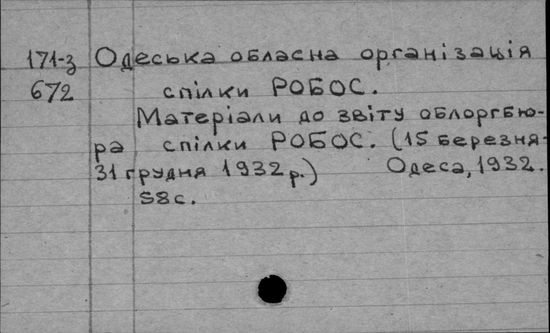 171-з Одеська обласна організація
672 спілки РОБОС.
Матеріали до звіту облоргбю-
ра спілки РОБОС. (15 березня-
31 грудня 1932 р.) Одеса, 1932.
58с.